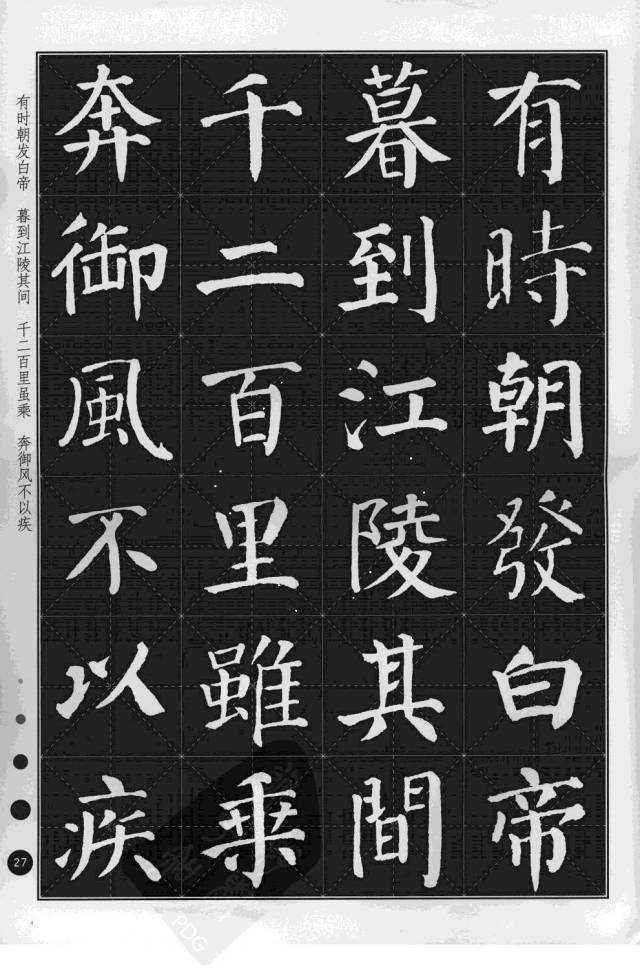 有時朝發白帝
暮到江陵其間
千二百里雖乘
奔御風不以疾
有时朝发白帝 暮到江陵其间 千二百里虽乘 奔御风不以疾
27
PDG